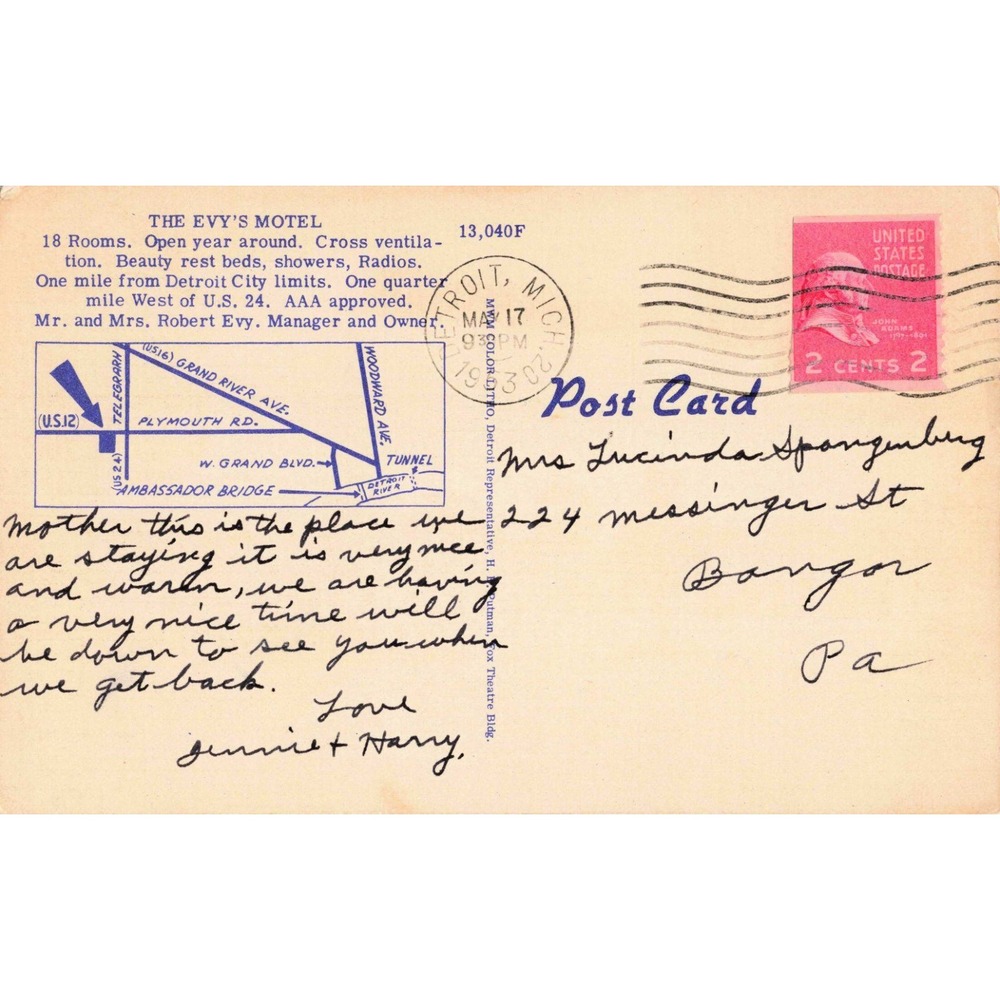 THE EVY'S MOTEL
18 Rooms. Open year around. Cross ventila-
tion. Beauty rest beds, showers, Radios.
One mile from Detroit City limits. One quarter
mile West of U.S. 24. AAA approved.
Mr. and Mrs. Robert Evy. Manager and Owner.
13,040F
DETROIT, MICH. 20
MAY 17
9 30 PM
1953
UNITED
STATES
POSTAGE
JOHN
ADAMS
2 CENTS 2
(U.S.12)
TELEGRAPH
(US 24)
(US16) GRAND RIVER AVE.
PLYMOUTH RD.
WOODWARD AVE.
W. GRAND BLVD.
TUNNEL
AMBASSADOR BRIDGE
DETROIT
RIVER
COLOR LITHO, Detroit Representative, H. Putman, Fox Theatre Bldg.
Post Card
Mother this is the place we
are staying it is very nice
and warm, we are having
a very nice time will
be down to see you when
we get back.
Love
Jennie + Harry,
Mrs Lucinda Spangenburg
224 Messinger St
Bangor
Pa